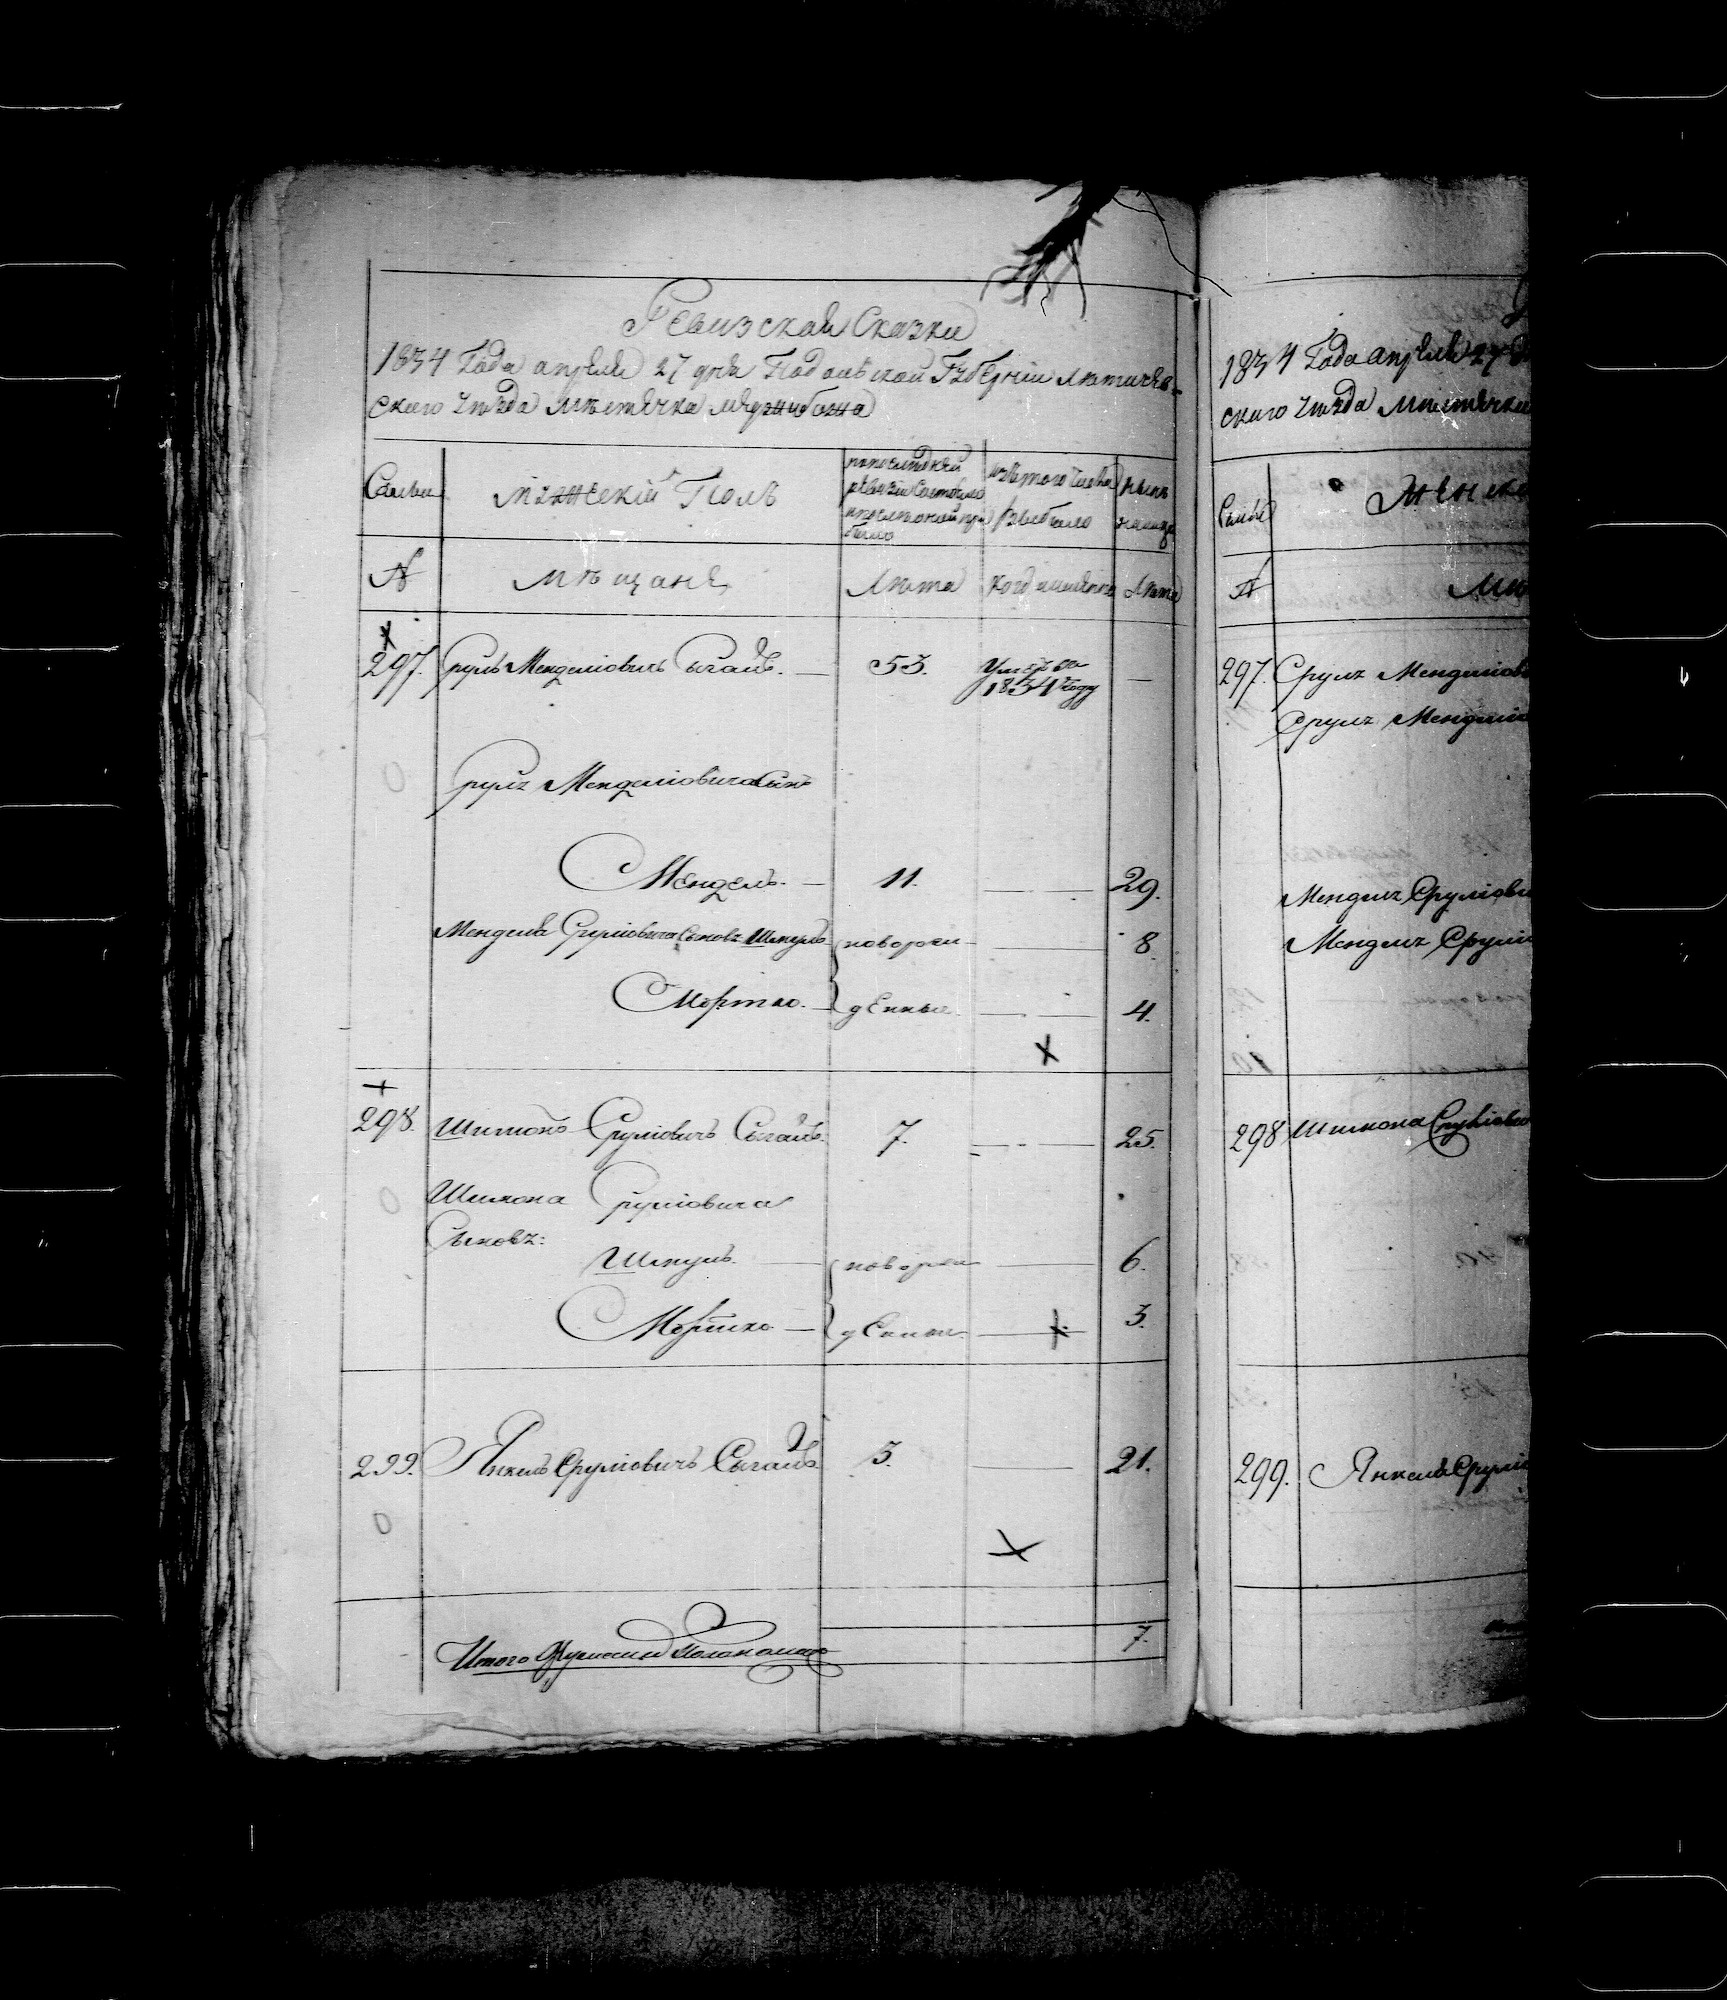 Ревизской Сказки
1834 Года апреля 27 дня Подольской Губернии Летичев-
ского уезда местечка Меджибожа
Семьи
Мужеский Полъ
по последней
ревизии состояло
и после оной при
было
изъ того числа
выбыло
ныне
налицо
№
мещане
Лета
Лета
297.
Сруль Менделiовичъ
53.
1834 году
—
Сруля Менделiовича сынъ
Мендель. —
11.
29.
Менделя Срулiовича сыновья Шмуль
новорож
8.
Мортко. —
денные
4.
298.
Шимонъ Срулiовичъ
7.
25.
Шимона Срулiовича
Сыновья:
Шмуль. —
новорож
6.
Мортко —
денные.
3.
299.
Янкель Срулiовичъ
3.
21.
Итого мужеска пола налицо
7.
1834 Года апреля 27
ского уезда местечка
Семьи
Женск
№
Ме
297. Сруля Менделiов
Сруля Менделiов
Менделя Срулiови
Менделя Срулiо
298 Шимона Срулiови
299. Янкеля Срулiо